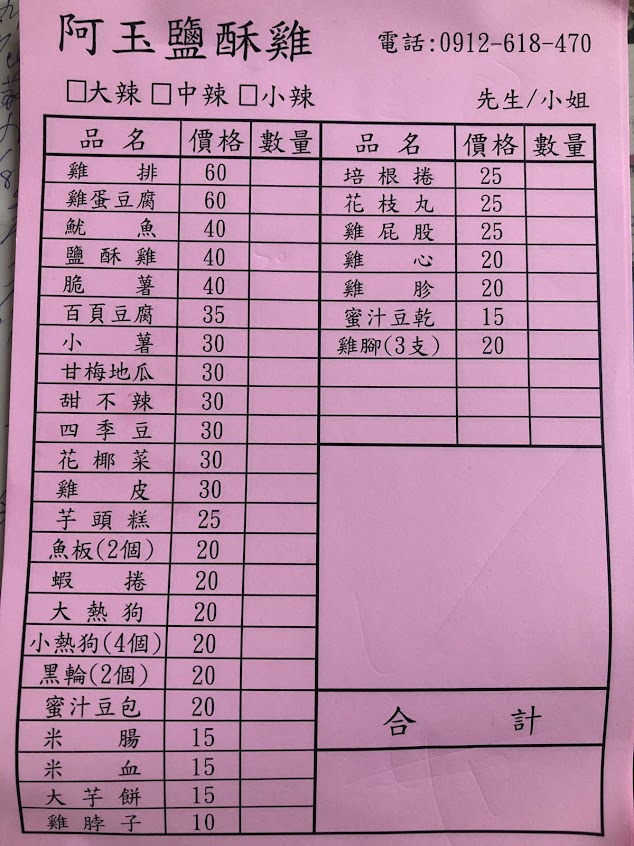 阿玉鹽酥雞 電話:0912-618-470
□大辣 □中辣 □小辣 先生/小姐
品名 價格 數量
雞排 60
雞蛋豆腐 60
魷魚 40
鹽酥雞 40
脆薯 40
百頁豆腐 35
小薯 30
甘梅地瓜 30
甜不辣 30
四季豆 30
花椰菜 30
雞皮 30
芋頭糕 25
魚板(2個) 20
蝦捲 20
大熱狗 20
小熱狗(4個) 20
黑輪(2個) 20
蜜汁豆包 20
米腸 15
米血 15
大芋餅 15
雞脖子 10
品名 價格 數量
培根捲 25
花枝丸 25
雞屁股 25
雞心 20
雞胗 20
蜜汁豆乾 15
雞腳(3支) 20
合計